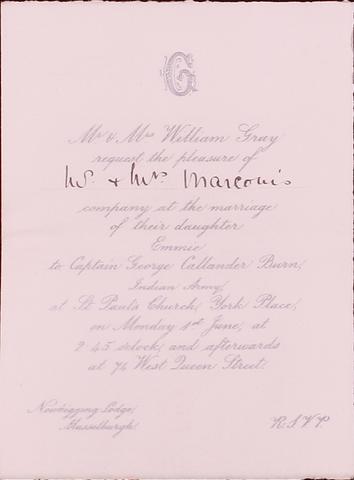 G
Mr & Mrs William Gray
request the pleasure of
Mr. & Mrs Marconi's
company at the marriage
of their daughter
Emmie
to Captain George Callander Burn,
Indian Army,
at St Pauls Church, York Place,
on Monday 1st June, at
2.45 oclock, and afterwards
at 74 West Queen Street.
Newbigging Lodge,
Musselburgh.
R.S.V.P.